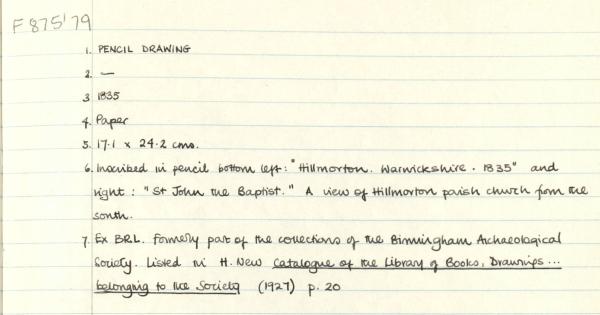 F875'79
1. PENCIL DRAWING
2. —
3 1835
4. Paper
5. 17.1 x 24.2 cms.
6. Inscribed in pencil bottom left: "Hillmorton. Warwickshire. 1835" and
right: "St John the Baptist." A view of Hillmorton parish church from the
south.
7. Ex BRL. Formerly part of the collections of the Birmingham Archaeological
Society. Listed in H. New Catalogue of the Library of Books, Drawings...
belonging to the Society (1927) p. 20